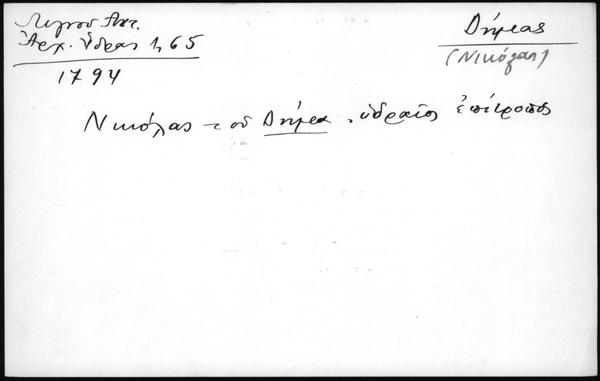 Λιγνού Ἀντ.
Ἀρχ. Ὕδρας 1, 65
1794
Δήμας
(Νικόλας)
Νικόλας τοῦ Δήμα, ὑδραῖος ἐπίτροπος